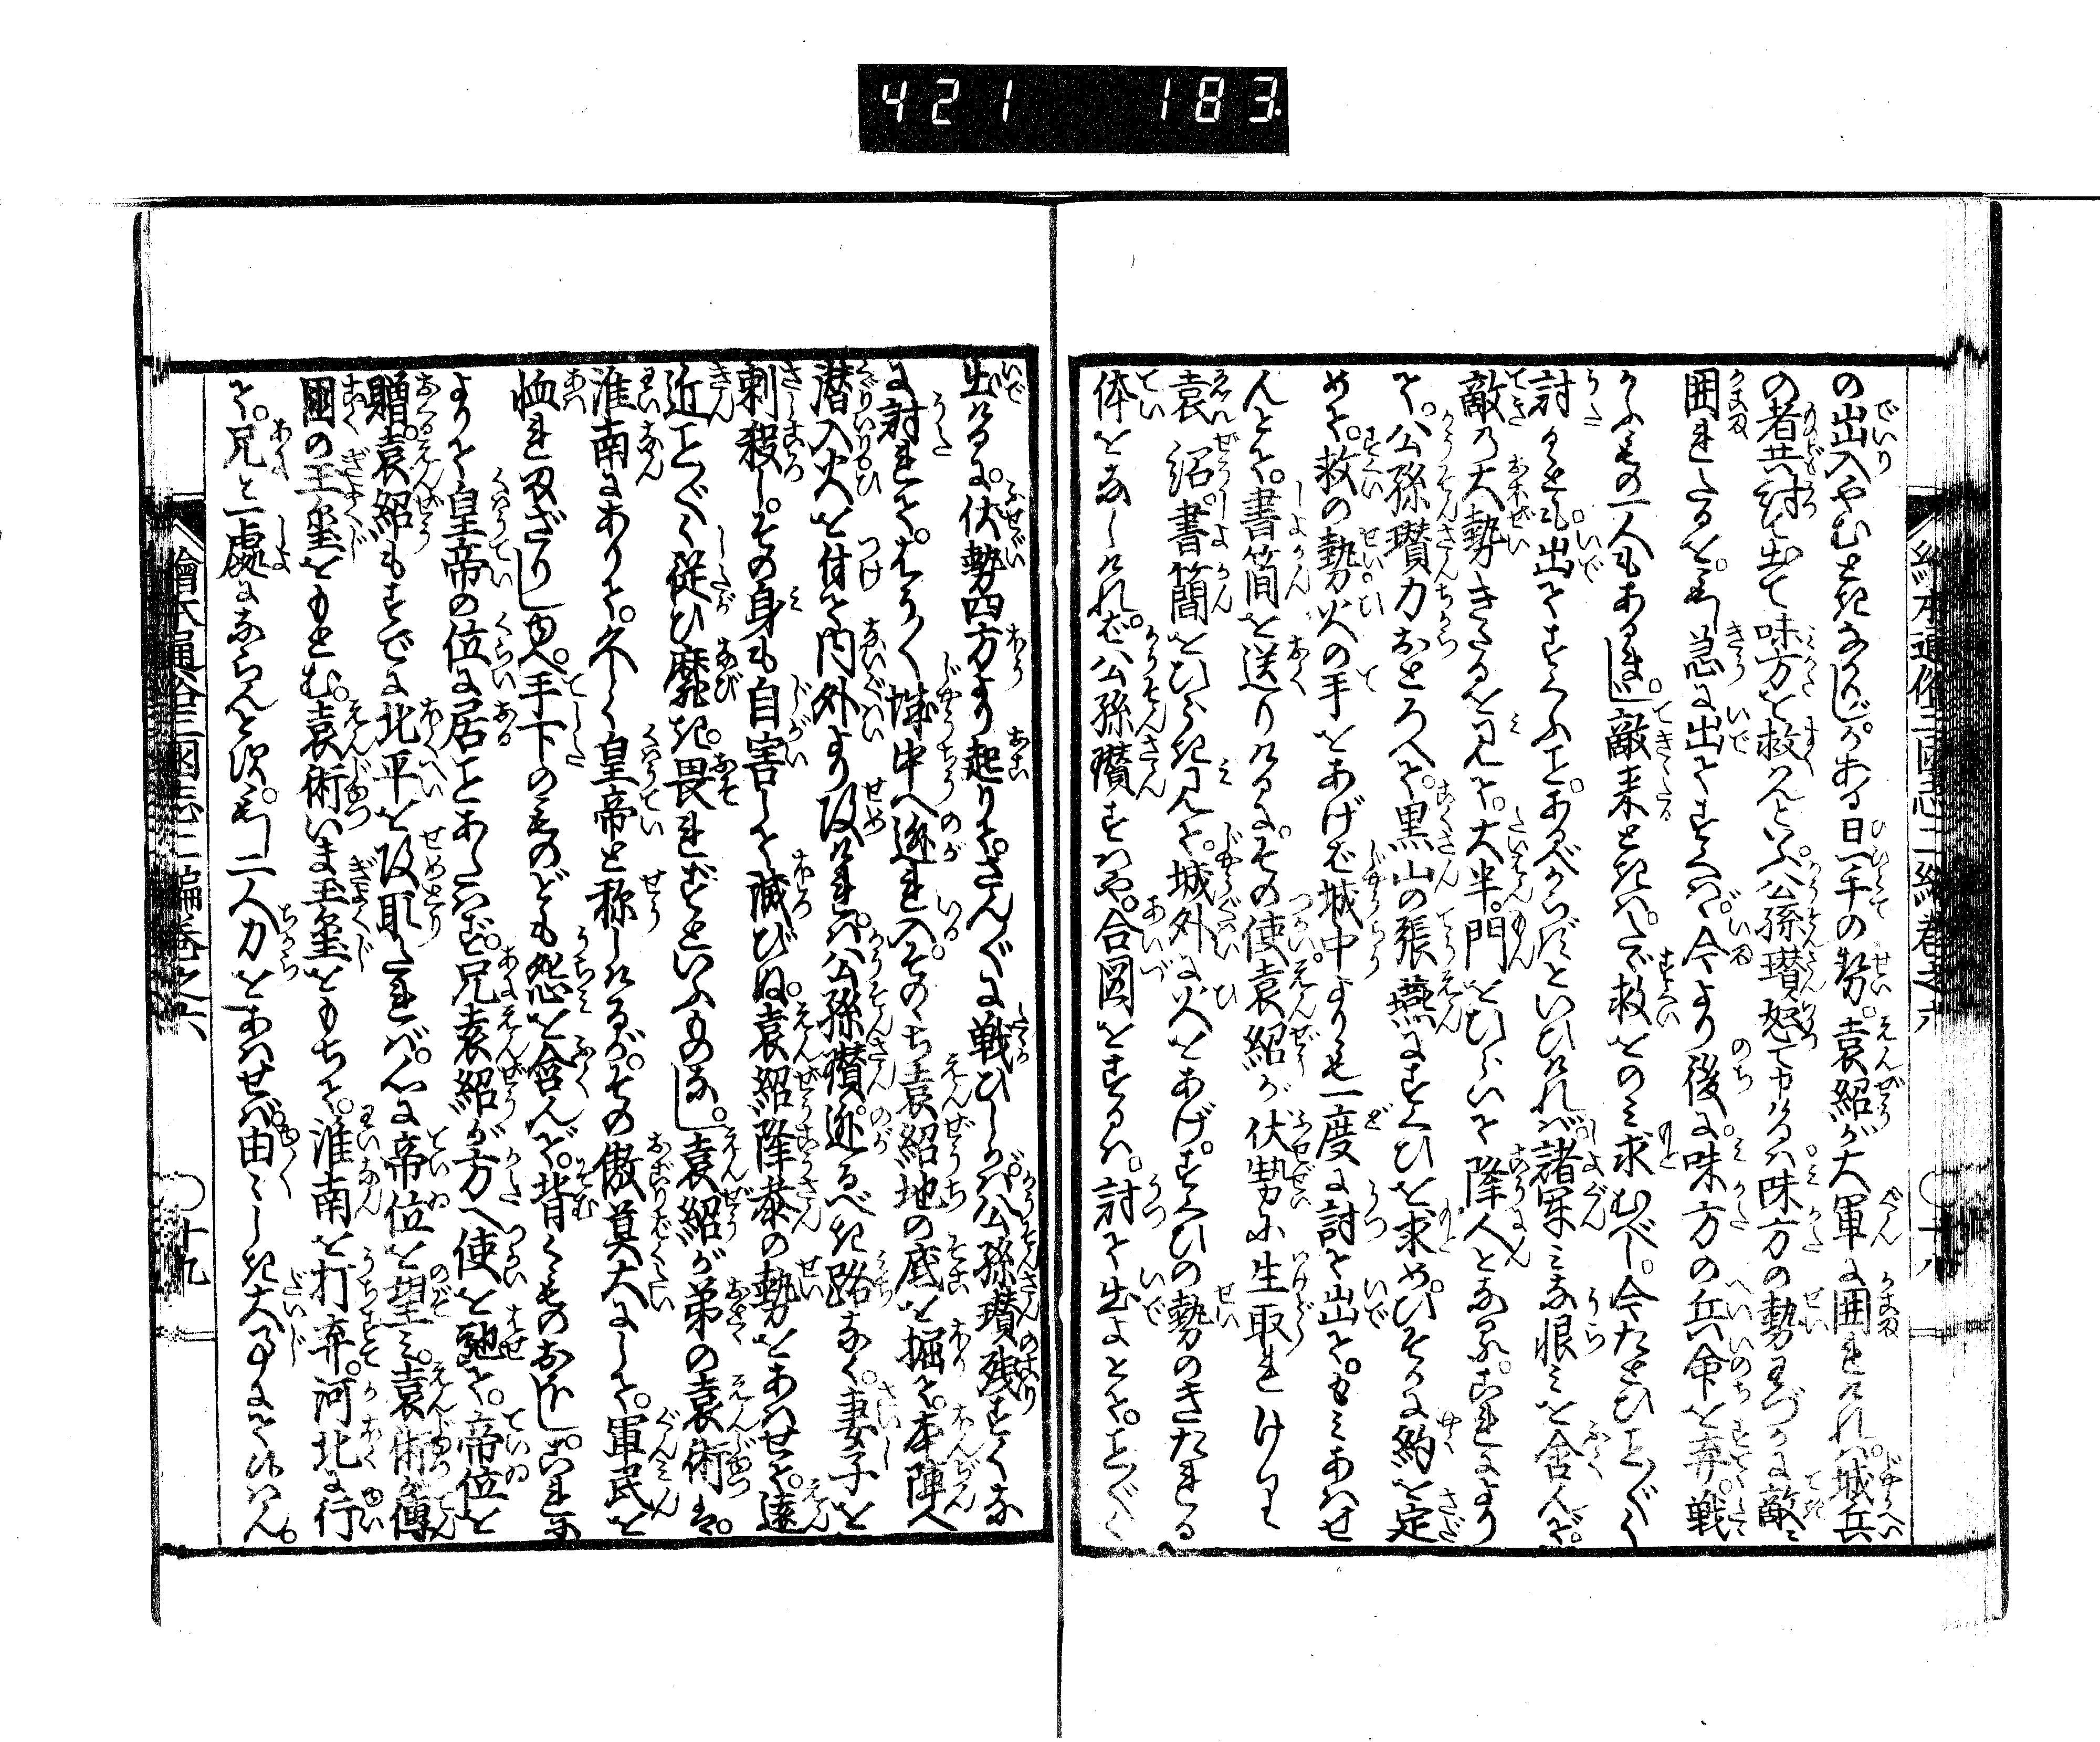 421 183.
繪本通俗三國志二編卷之六 〇十八
の出入やむときなし。ある日一手の勢。袁紹が大軍に囲まれければ。城兵
の者共討て出て味方を救んといふ。公孫瓚怒て申けるは味方の勢わづかに敵に
囲れたるを。もし急に出てすくへば。今より後に味方の兵命を弃。戦
かふもの一人もあるまじ。敵来ときは。たゞ救をのみ求むべし。今たとひこと〴〵く
討るとも。出てすくふこと。あるべからずといひければ諸軍みな恨を含んで。
敵の大勢きたるを見て。大半。門をひらいて降人となる。これより
て。公孫瓚力おとろへて。黒山の張燕にすくひを求め。ひそかに約を定
めて。救の勢火の手をあげば城中よりも一度に討て出て。もみあはせ
んとて。書簡を送りけるに。その使袁紹が伏勢に生取れけり
袁紹。書簡をひらき見て。城外に火をあげ。すくひの勢のきたれる
体をなしければ。公孫瓚すはや。合図をするは。討て出よとて。こと〴〵く
出けるに。伏勢四方より起りて。さん〴〵に戦ひしかば公孫瓚残すくな
に討れて。やう〳〵城中へ逃れ入。そのゝち袁紹地の底を堀て。本陣へ
潜入火を付て内外より攻ければ。公孫瓚逃るべき路なく。妻子を
刺殺し。その身も自害して滅びぬ。袁紹降参の勢をあはせて。遠
近こと〴〵く従ひ靡き。畏れずといふものなし。袁紹が弟の袁術は。
淮南にありて。久しく皇帝と称しけるが。その傲莫大にして。軍民を
恤れまざりしゆへ。手下のものども怨を含んで。背くものおほし。これに
よりて皇帝の位に居ことあたはず。兄袁紹が方へ使を馳て。帝位を
贈。袁紹もすでに北平を攻取たれば。心に帝位を望み。袁術傳
國の玉璽をもとむ。袁術いま玉璽をもちて。淮南を打弃。河北に行
て。兄と一處にならんとす。もし二人力をあはせば由々しき大事にて候はん。
繪本通俗三國志二編卷之六 〇十九